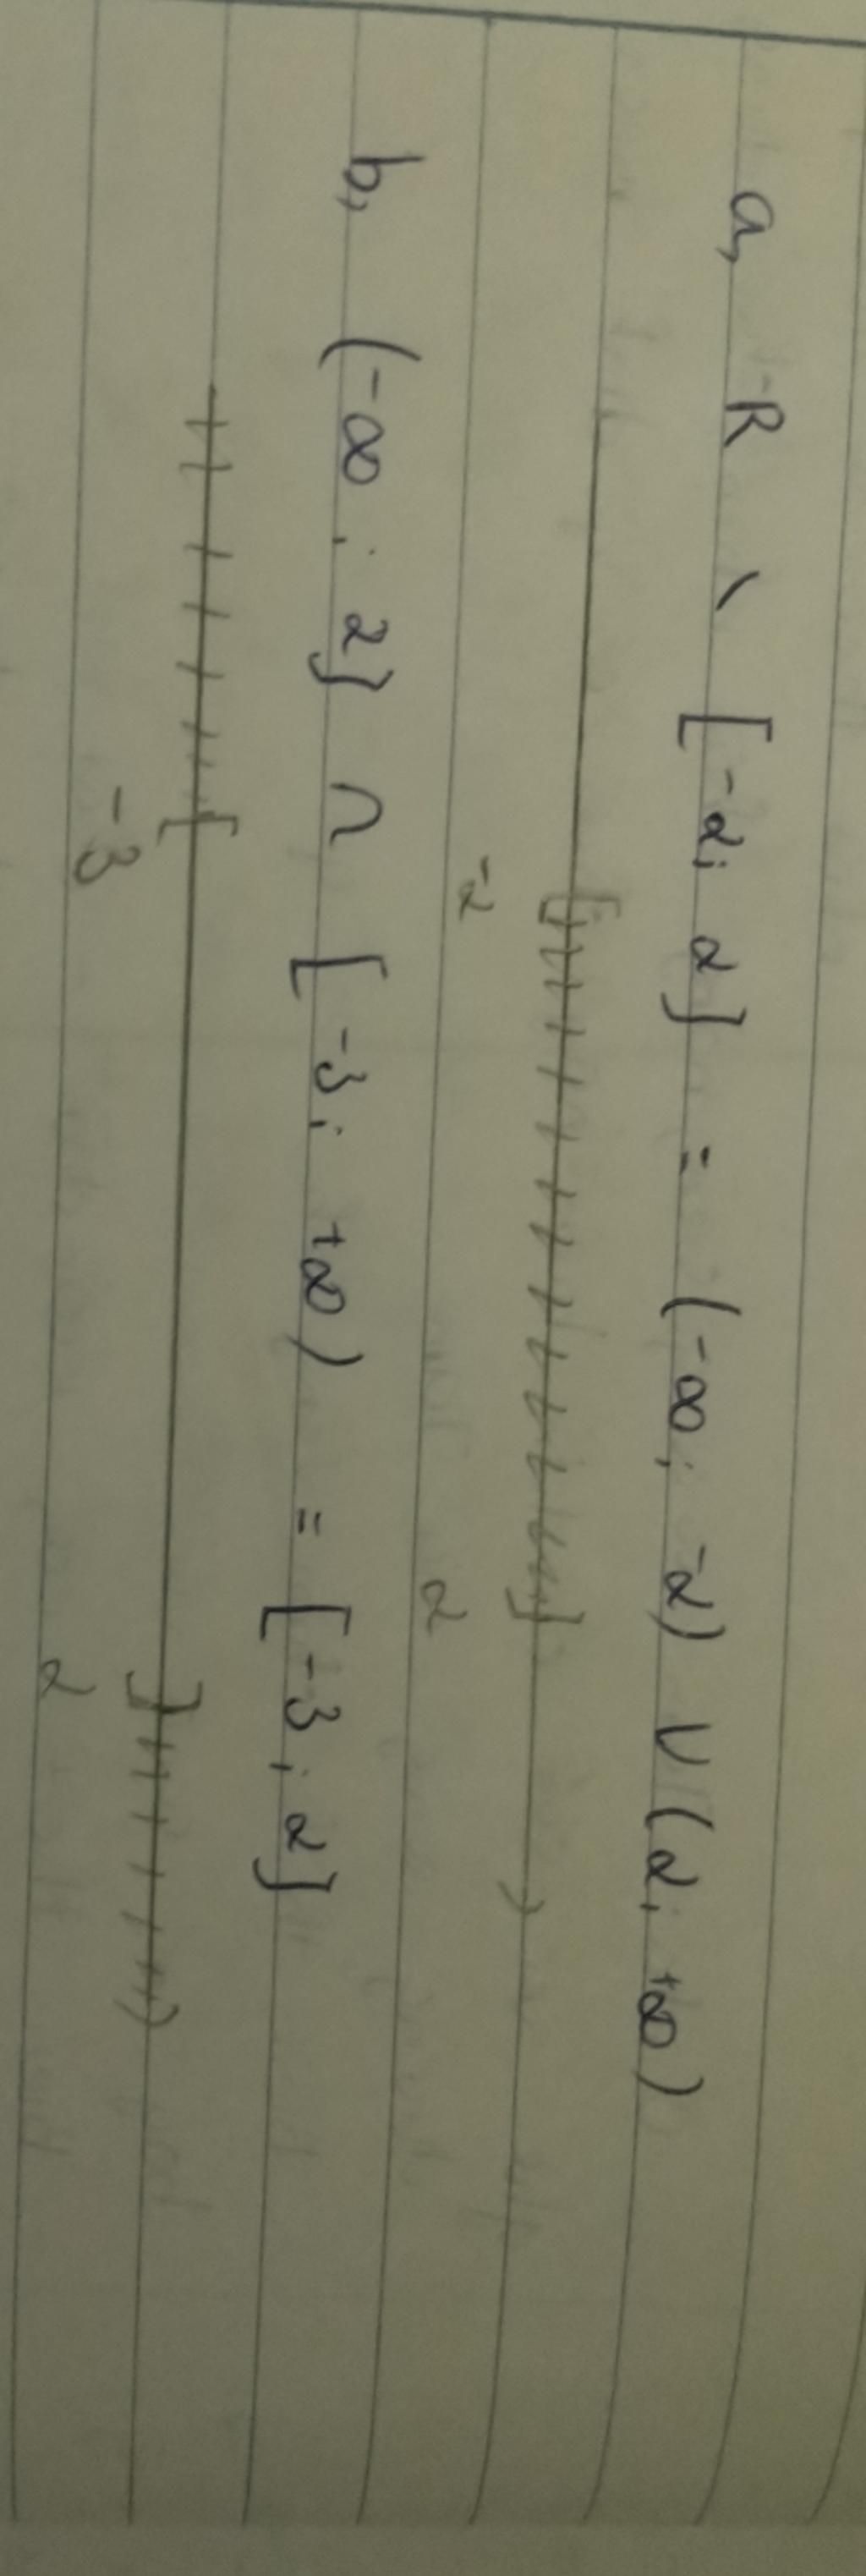 a, R \ [-2; 2] = (-∞; -2) ∪ (2; +∞)
[ ] )
-2 2
b, (-∞; 2] ∩ [-3; +∞) = [-3; 2]
[ ] )
-3 2